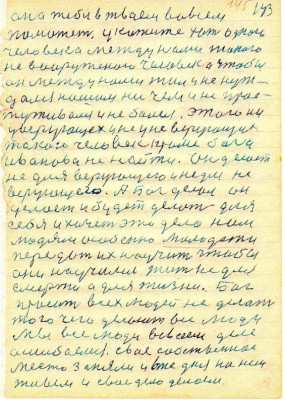 193
она тебе в твоем во всем
поможет. укажите хот одного
человека между нами такого
не вооруженого человека чтобы
он между нами жил и не нуж-
дался нашим ни чем и не прос-
туживался и не болел. Этого ни
у верующех и не у неверующих
такого человека кроме бога
иванова не найти. Он делает
не для верующего и не для не
верующего. А Бог делал он
делает и будет делать для
себя и хочет это дело нам
людям особенно молодежи
передать их научит чтобы
они научилися жит не для
смерти а для жизни. Бог
просит всех людей не делат
того чего делают все люди
Мы все люди во всем деле
ошибаемся. свое собственное
место заняли и уже для на ней
живем и свое дело делаем.